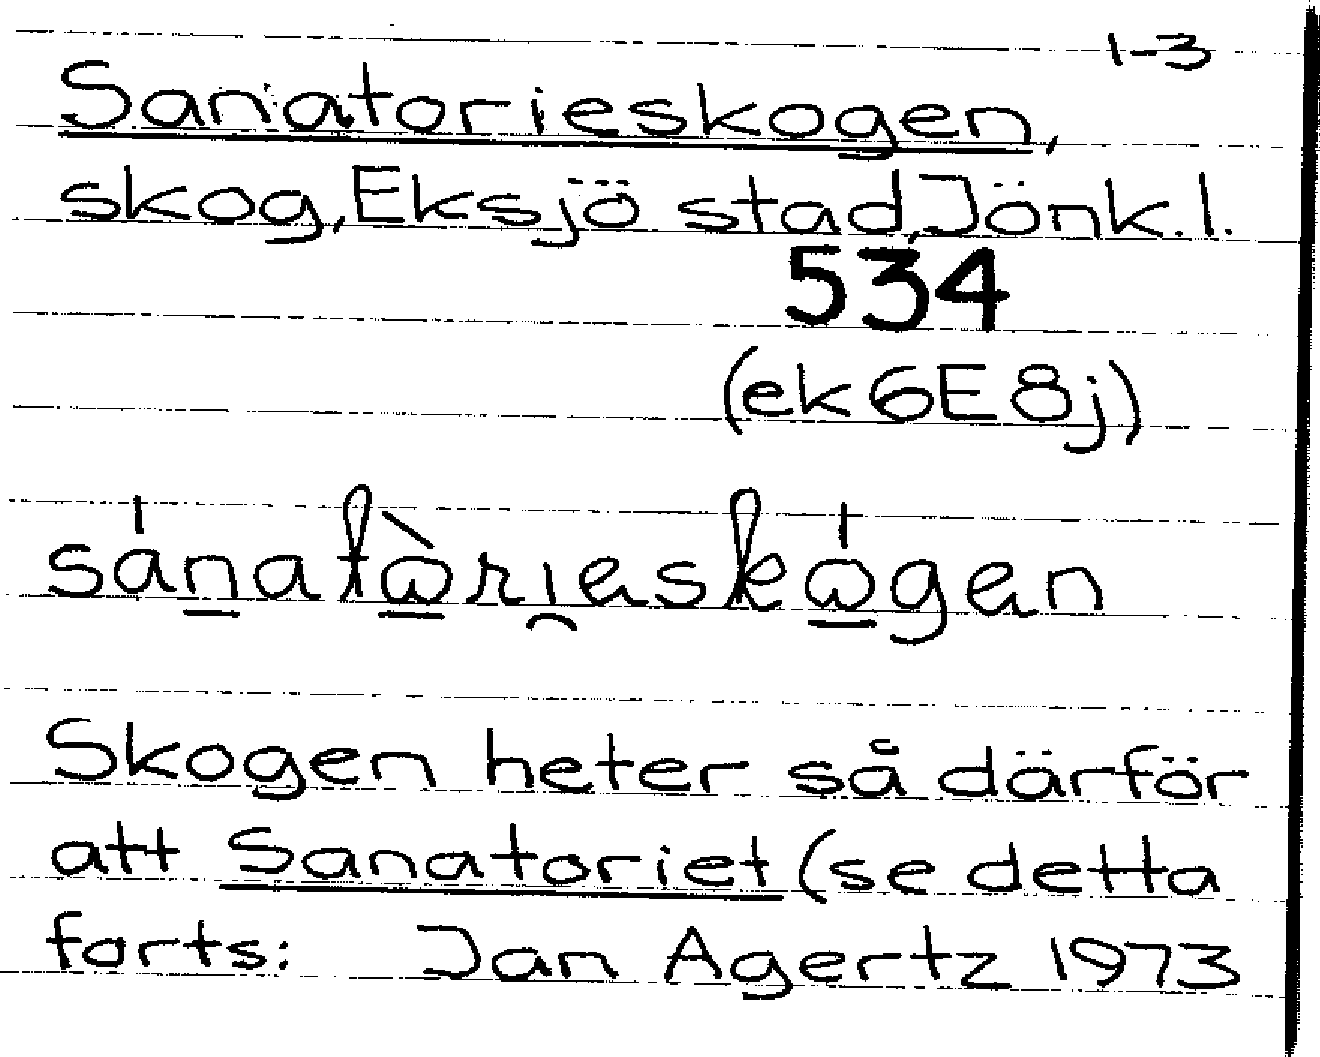 1-3
Sanatorieskogen,
skog, Eksjö stad, Jönk. l.
534
(ek 6E 8j)
sánatòrieskógen
Skogen heter så därför
att Sanatoriet (se detta
forts: Jan Agertz 1973